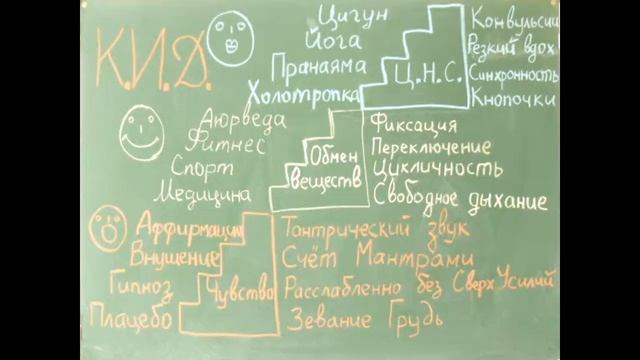 К.И.Д.
Цигун
Йога
Пранаяма
Холотропка
Ц.Н.С.
Конвульсии
Резкий вдох
Синхронность
Кнопочки
Аюрведа
Фитнес
Спорт
Медицина
Обмен
веществ
Фиксация
Переключение
Цикличность
Свободное дыхание
Аффирмации
Внушение
Гипноз
Плацебо
Чувство
Тантрический звук
Счёт Мантрами
Расслабленно без СверхУсилий
Зевание Грудь